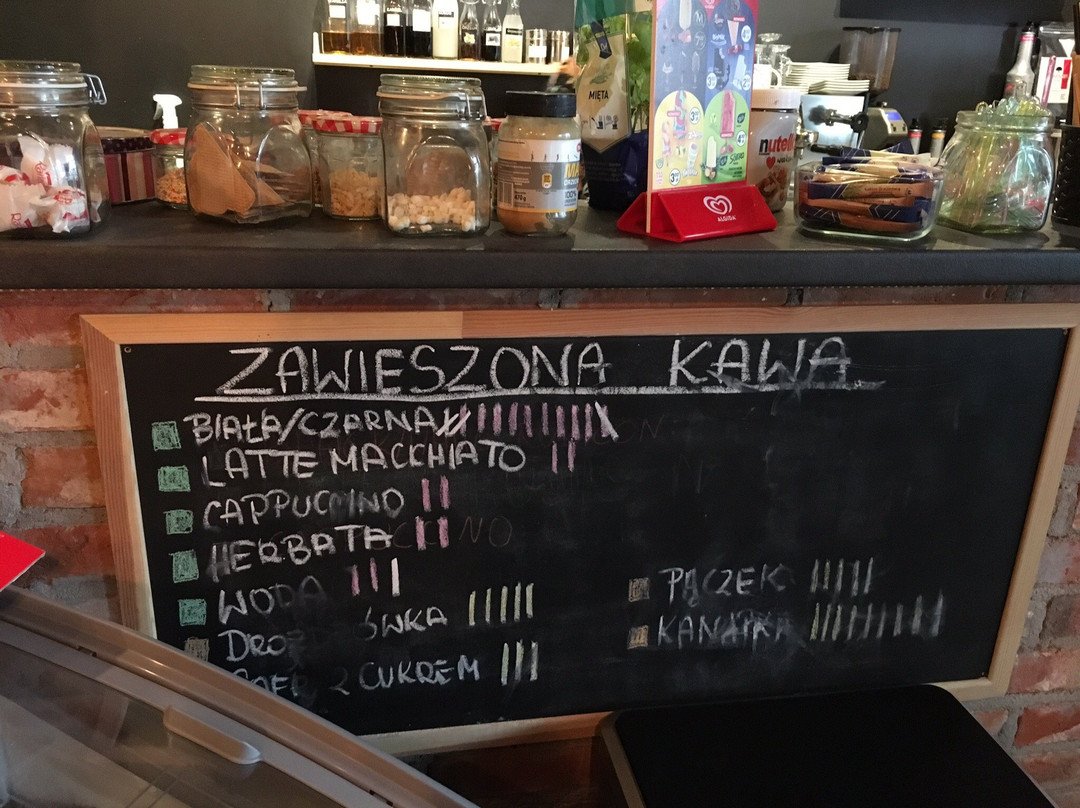 MIĘTA
nutella
ALGIDA
ZAWIESZONA KAWA
BIAŁA/CZARNA
LATTE MACCHIATO
CAPPUCCINO
HERBATA
WODA
PĄCZEK
KANAPKA
2 CUKREM